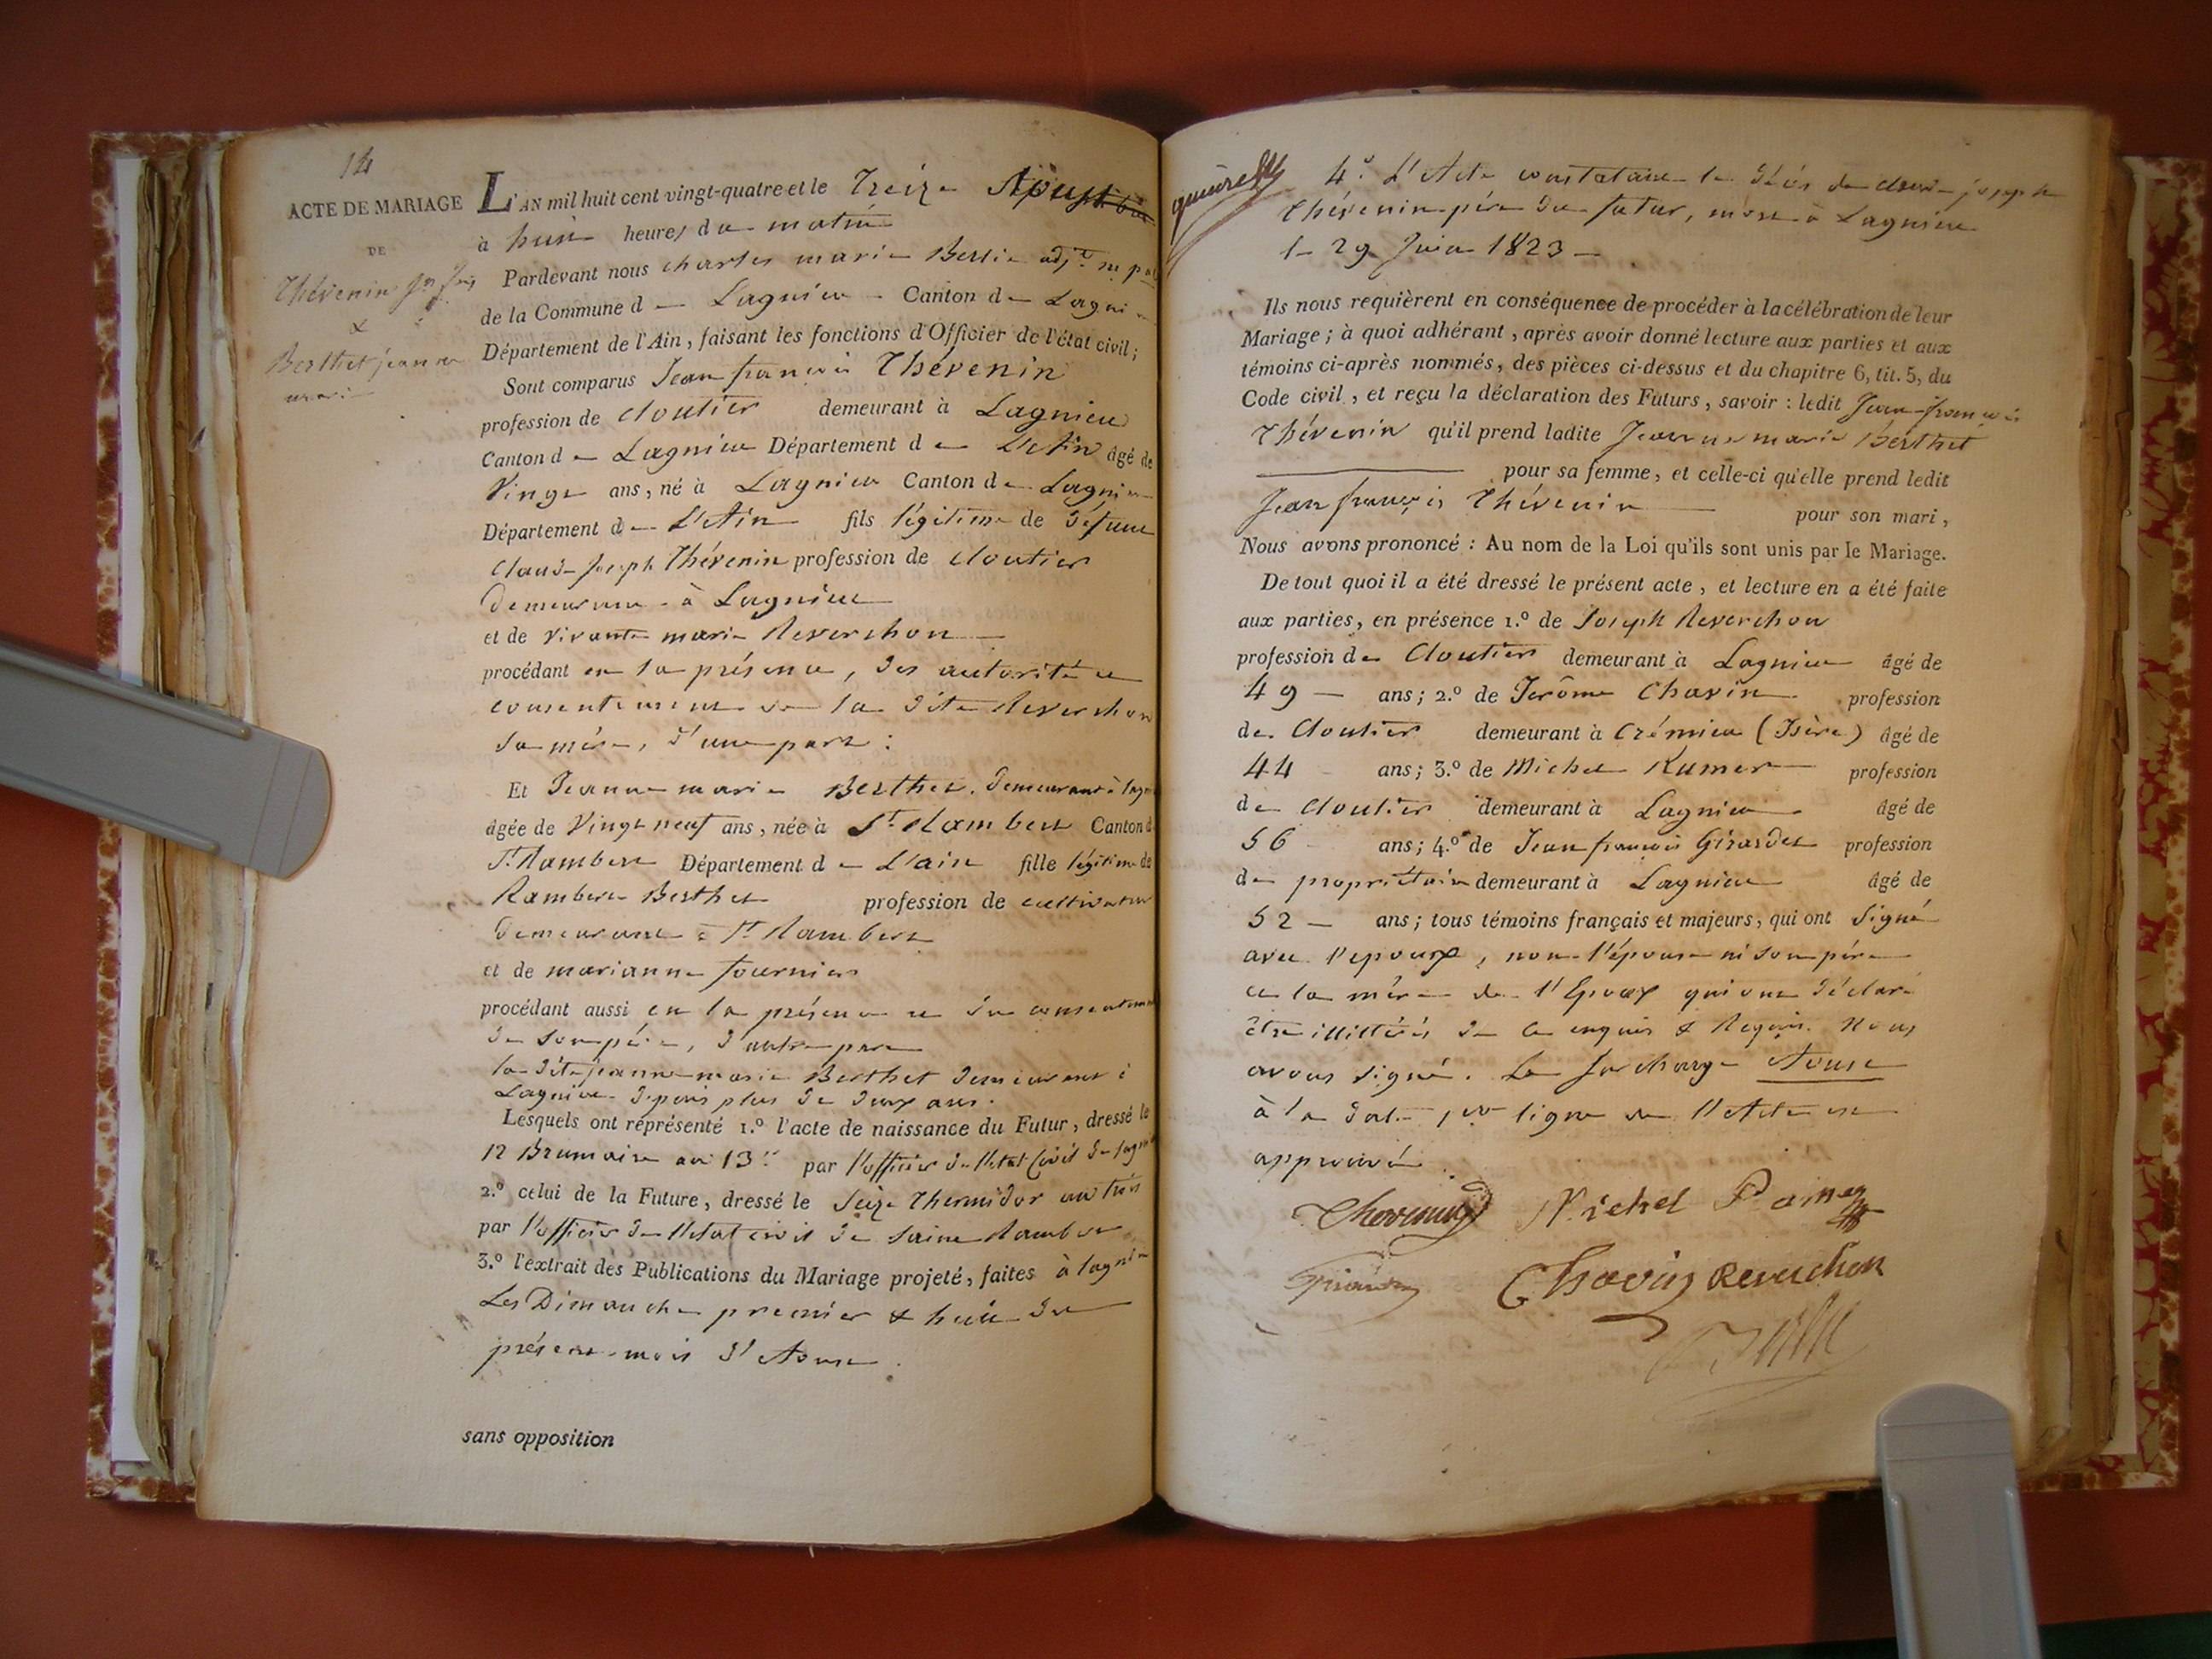 14
ACTE DE MARIAGE
DE
Thévenin Jn fois
&
Berthet jeanne
marie
L'AN mil huit cent vingt-quatre et le Treize Aoust
à huit heures du matin
Pardevant nous charles marie adjt
de la Commune de Lagnieu Canton de Lagnieu
Département de l'Ain, faisant les fonctions d'Officier de l'état civil;
Sont comparus Jean françois Thévenin
profession de cloutier demeurant à Lagnieu
Canton de Lagnieu Département de L'Ain âgé de
Vingt ans, né à Lagnieu Canton de Lagnieu
Département de L'Ain fils légitime de défunt
Claude Joseph Thévenin profession de cloutier
demeurant à Lagnieu
et de vivante marie Reverchon
procédant en la présence, des autorité et
consentement de la dite Reverchon
sa mère, d'une part :
Et Jeanne marie Berthet. demeurant à lagnieu
âgée de Vingt neuf ans, née à St. Rambert Canton de
St. Rambert Département de L'ain fille légitime de
Rambert Berthet profession de cultivateur
demeurant à St Rambert
et de marianne fournier
procédant aussi en la présence et du consentement
de son père, d'autre part
la dite jeanne marie Berthet demeurant à
Lagnieu depuis plus de deux ans.
Lesquels ont représenté 1.º l'acte de naissance du Futur, dressé le
12 Brumaire an 13e par l'officier de l'etat Civil de lagnieu
2.º celui de la Future, dressé le Seize Thermidor an trois
par l'officier de l'etat civil de saint Rambert
3.º l'extrait des Publications du Mariage projeté, faites à lagnieu
Les Dimanche premier & huit du
présent mois d'Aoust.
sans opposition
4.º L'Acte constatant le décès de claude joseph
Thévenin père du futur, mort à Lagnieu
le 29 Juin 1823
Ils nous requièrent en conséquence de procéder à la célébration de leur
Mariage; à quoi adhérant, après avoir donné lecture aux parties et aux
témoins ci-après nommés, des pièces ci-dessus et du chapitre 6, tit. 5, du
Code civil, et reçu la déclaration des Futurs, savoir : ledit Jean françois
Thévenin qu'il prend ladite Jeanne marie Berthet
pour sa femme, et celle-ci qu'elle prend ledit
Jean françois Thévenin pour son mari,
Nous avons prononcé : Au nom de la Loi qu'ils sont unis par le Mariage.
De tout quoi il a été dressé le présent acte, et lecture en a été faite
aux parties, en présence 1.º de Joseph Reverchon
profession de Cloutier demeurant à Lagnieu âgé de
49 ans; 2.º de Jerôme Chavin profession
de Cloutier demeurant à Crémieu (Isère) âgé de
44 ans; 3.º de Michel Ramer profession
de Cloutier demeurant à Lagnieu âgé de
56 ans; 4.º de Jean françois Girardet profession
de propriétaire demeurant à Lagnieu âgé de
52 ans; tous témoins français et majeurs, qui ont signé
avec l'epoux, non l'épouse ni son père
et la mère de l'Epoux qui ont déclaré
être illittérés de ce enquis & Requis. Nous
avons signé. La surcharge Aoust
à la date 1ere ligne de l'Acte est
approuvée.
Thevenin Michel Ramer
Girardet Chavin Reverchon